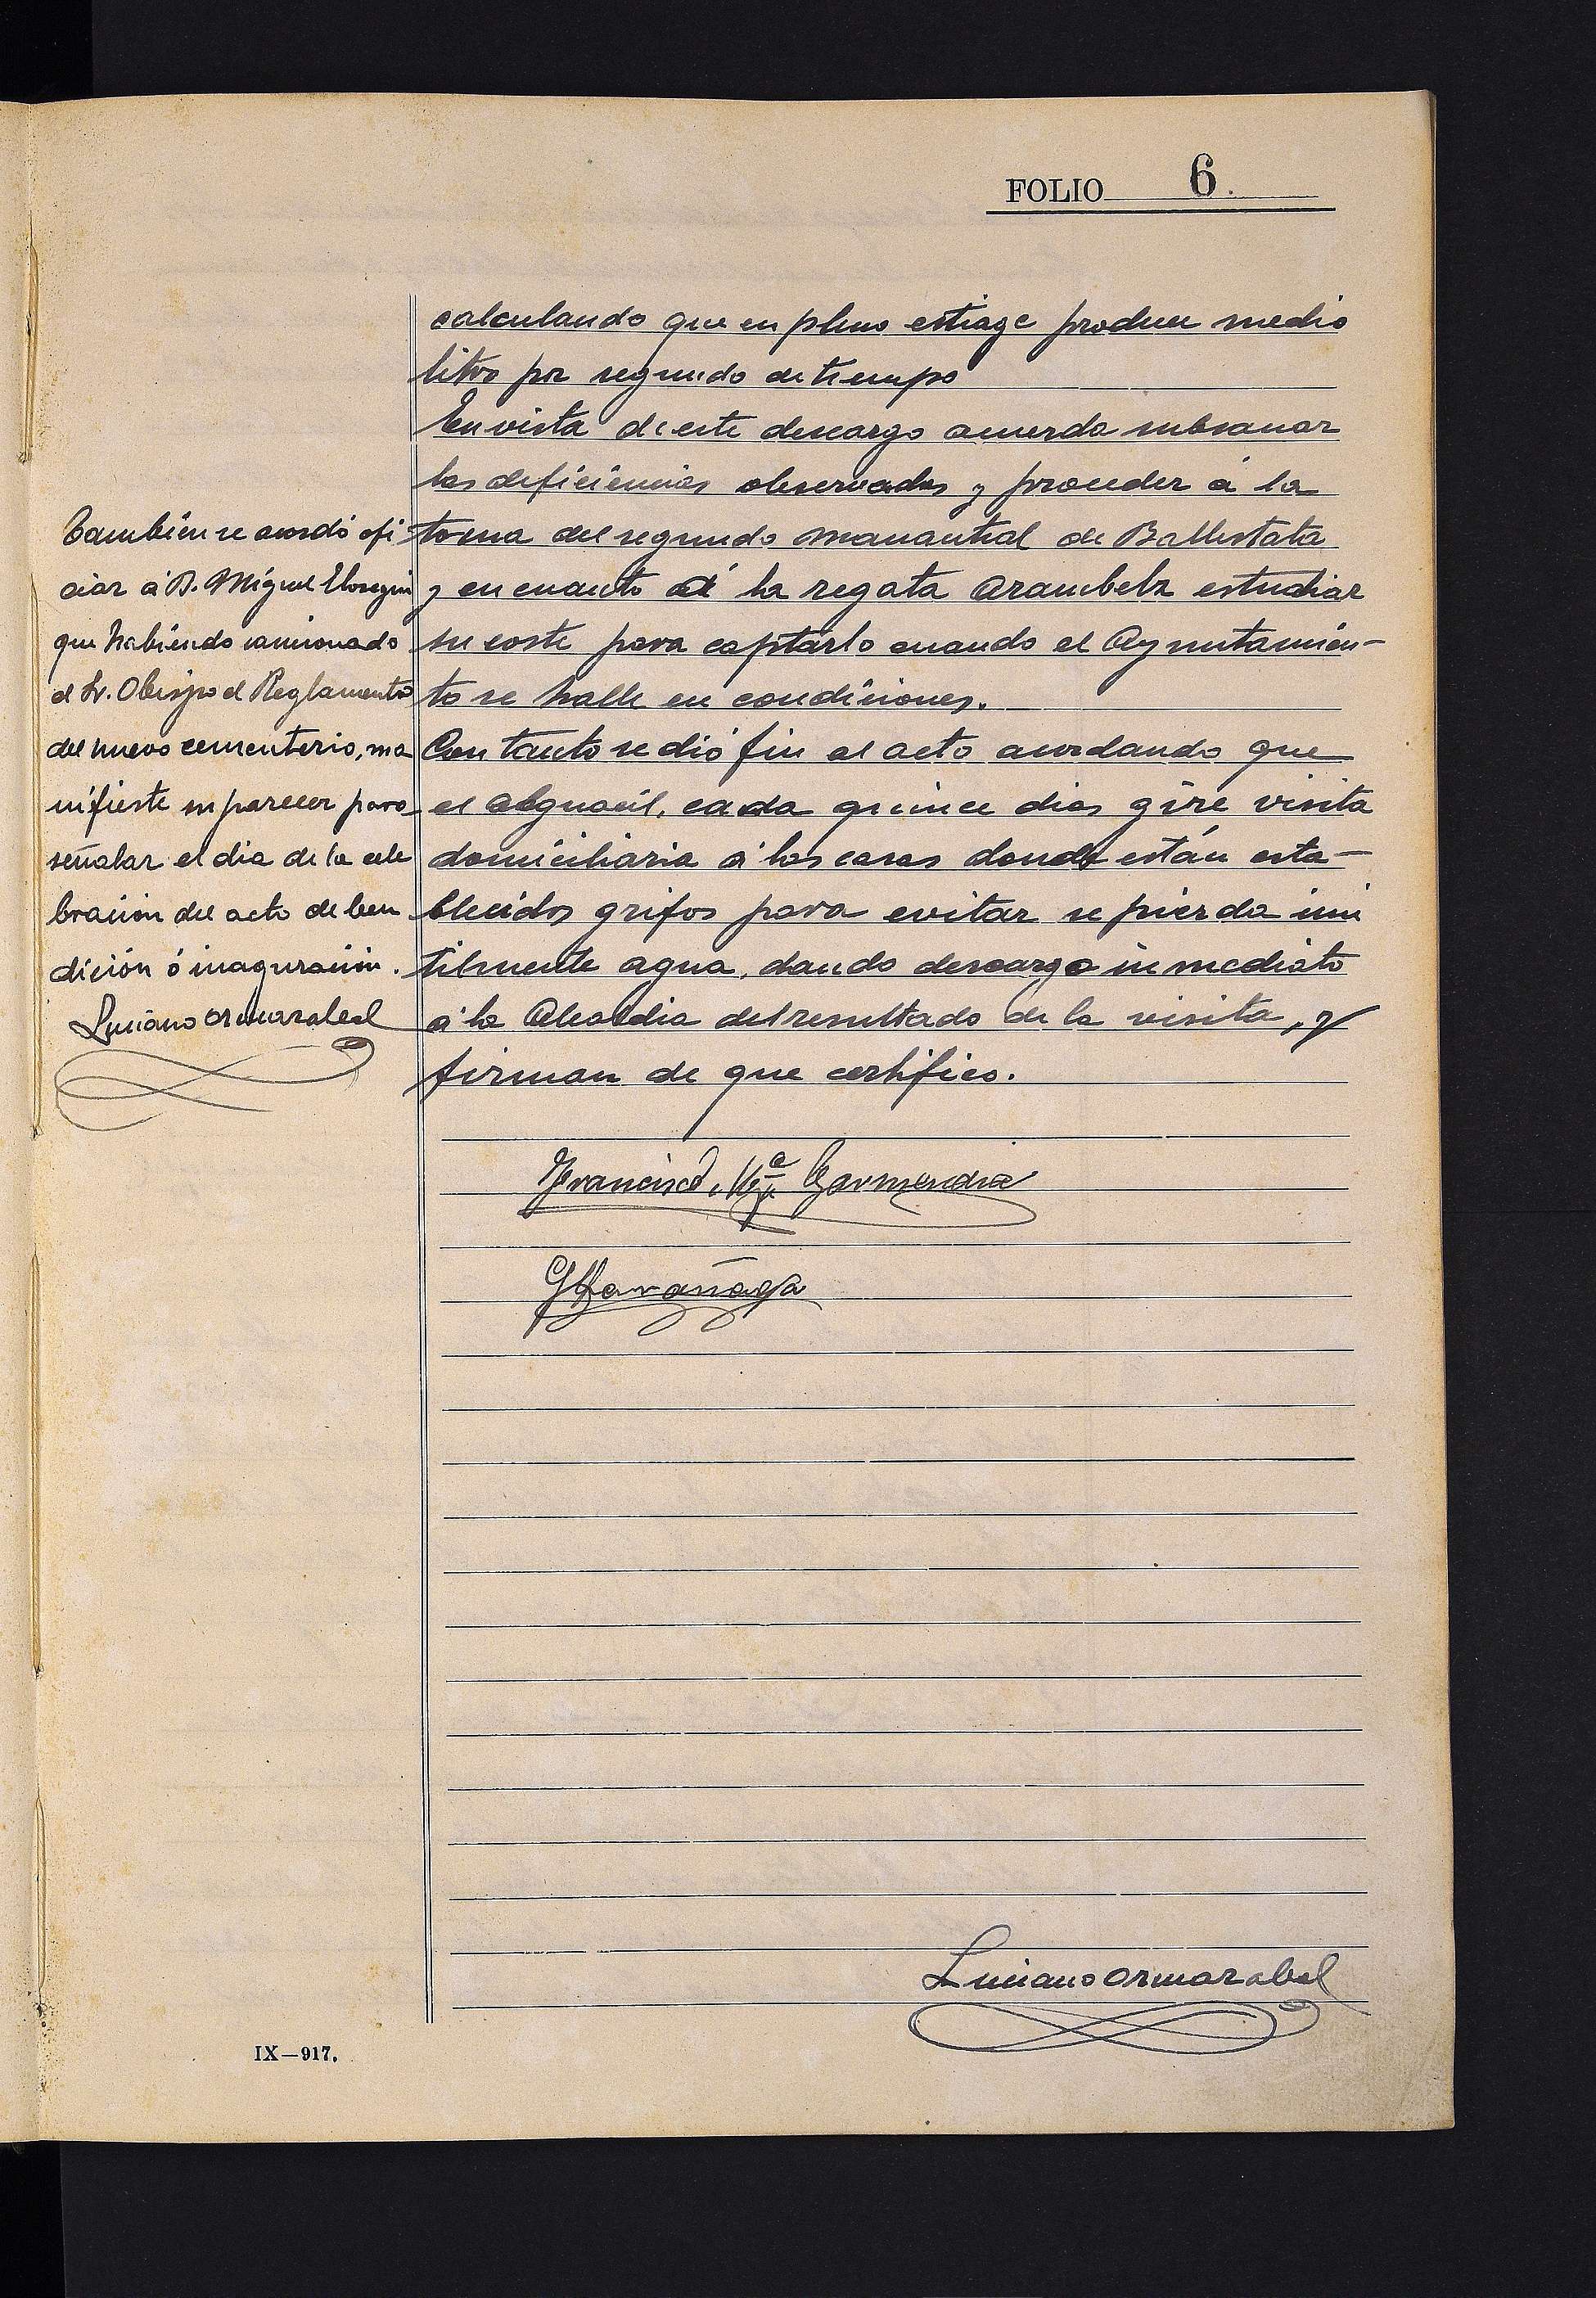 FOLIO 6.
calculando que en pleno estiage produce medio
litro por segundo de tiempo
En vista de este descargo acuerda subsanar
las deficiencias observadas y proceder á la
toma del segundo manantial de Ballestata
y en cuanto á la regata Arambelz estudiar
su coste para captarlo cuando el Ayuntamien-
to se halle en condiciones.
Con tanto se dió fin al acto acordando que
el alguacil, cada quince dias gire visita
domiciliaria á las casas donde están esta-
blecidos grifos para evitar se pierda inu
tilmente agua, dando descargo inmediato
á la Alcaldia del resultado de la visita, y
firman de que certifico.
También se acordó ofi
ciar á D. Miguel Elosegui
que habiendo sancionado
el Sr. Obispo el Reglamento
del nuevo cementerio, ma
nifieste su parecer para
señalar el dia de la cele
bracion del acto de ben
dición ó inaguración.
Luciano Ormazabal
Francisco Garmendia
Luciano Ormazabal
IX—917.